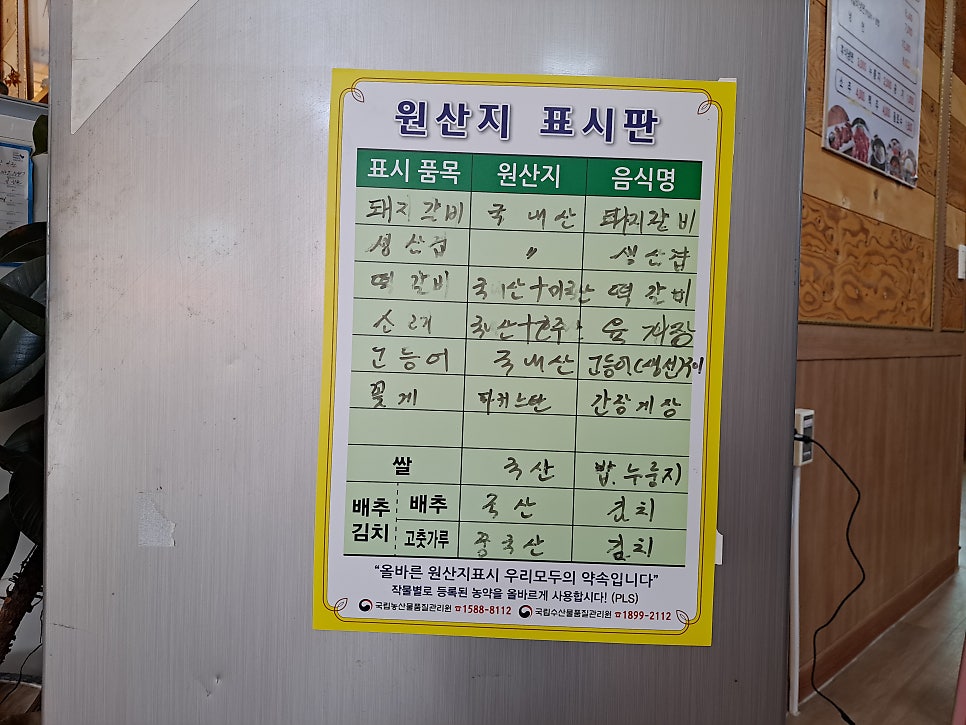 원산지 표시판
표시 품목 원산지 음식명
돼지갈비 국내산 돼지갈비
생산겹 〃 생산겹
떡갈비 떡갈비
국산+호주
고등어 국내산 고등어(생선)구이
꽃게 파키스탄 간장게장
쌀 국산 밥.누룽지
배추김치 배추 국산 김치
고춧가루 중국산 김치
"올바른 원산지표시 우리모두의 약속입니다"
작물별로 등록된 농약을 올바르게 사용합시다! (PLS)
국립농산물품질관리원 ☎1588-8112 국립수산물품질관리원 ☎1899-2112